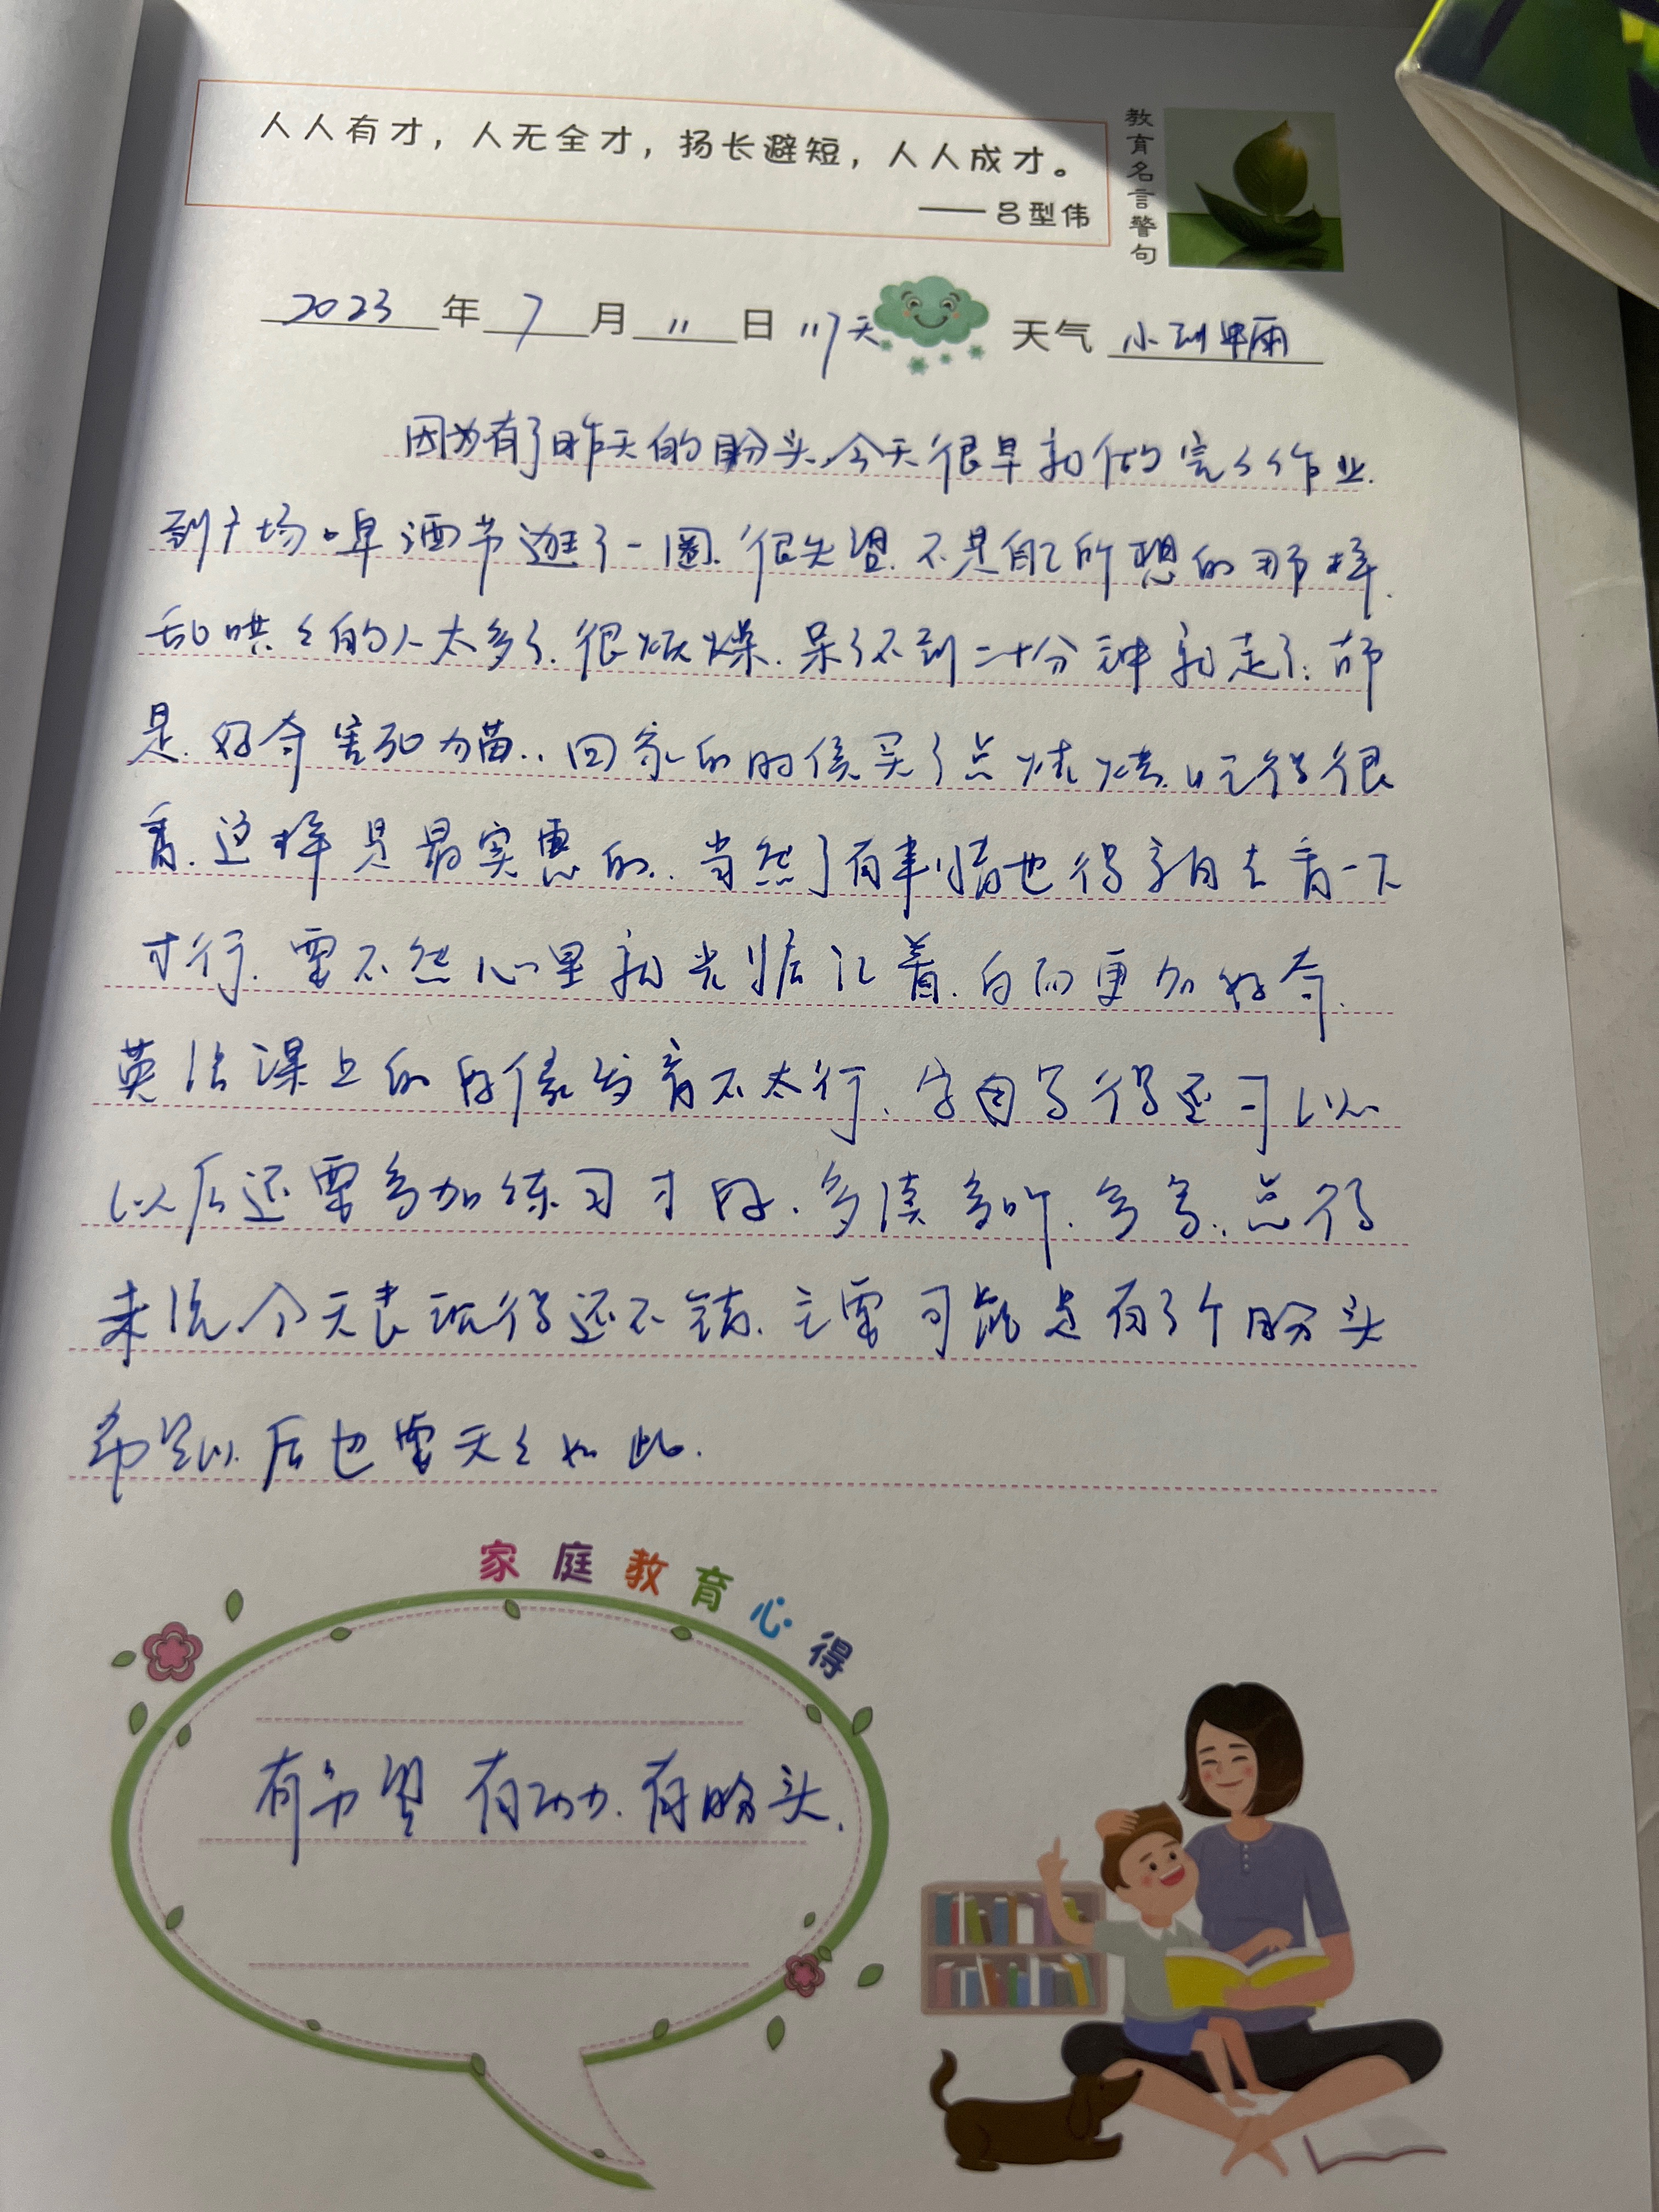 人人有才，人无全才，扬长避短，人人成才。
——吕型伟
教育名言警句
2023 年 7 月 11 日 117天 天气 小到中雨
因为有了昨天的盼头.今天很早就做完了作业.
到广场啤酒节逛了一圈.很失望.不是自己所想的那样.
乱哄々的人太多了.很烦燥.呆了不到二十分钟就走了.
是.好奇害死猫..回家的时侯买了点烧烤.吃得很
香.这样是最实惠的.当然了有事情也得亲自去看一下
才行.要不然心里就光惦记着.反而更加好奇.
英语课上的好像发音不太行.字母写得还可以
以后还要多加练习才好.多读多听.多写.总得
来说.今天表现得还不错.主要可能是有了个盼头
希望以后也要天々如此.
家庭教育心得
有希望 有动力.有盼头.